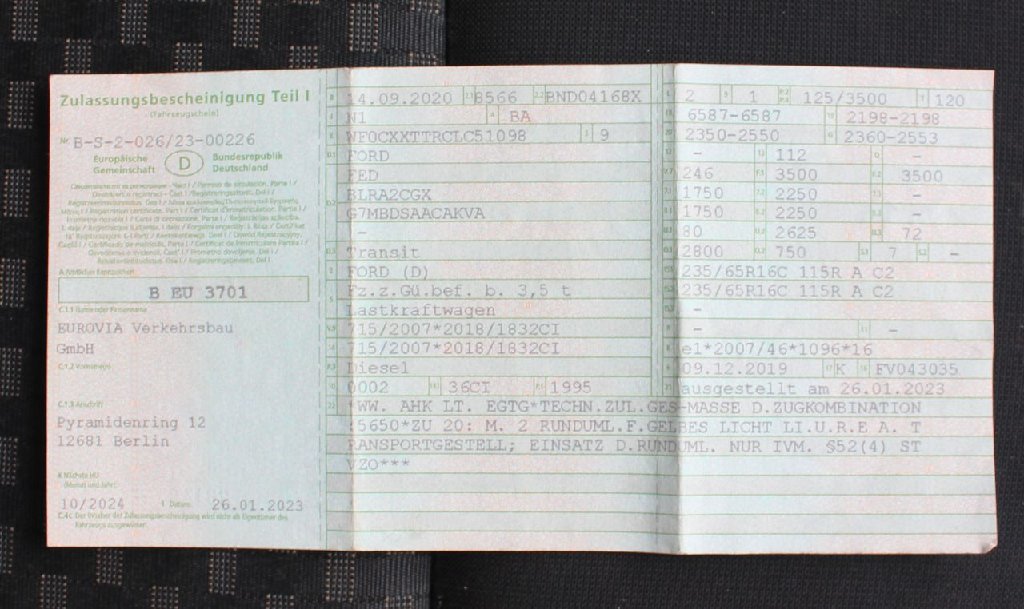 Zulassungsbescheinigung Teil I
(Fahrzeugschein)
Nr. B-S-2-026/23-00226
Europäische Gemeinschaft D Bundesrepublik Deutschland
A Amtliches Kennzeichen
B EU 3701
EUROVIA Verkehrsbau
GmbH
C.1.2 Vorname(n)
C.1.3 Anschrift
Pyramidenring 12
12681 Berlin
(Monat und Jahr)
10/2024 I Datum: 26.01.2023
C.4c Der Inhaber der Zulassungsbescheinigung wird nicht als Eigentümer des Fahrzeugs ausgewiesen.
14.09.2020 8566 BND04168X
N1 BA
WF0CXXTTRCLC51098 9
FORD
FED
BLRA2CGX
G7MBDSAACAKVA
-
Transit
FORD (D)
Fz.z.Gü.bef. b. 3,5 t
Lastkraftwagen
715/2007*2018/1832CI
715/2007*2018/1832CI
Diesel
0002 36CI 1995
2 1 125/3500 120
6587-6587 2198-2198
2350-2550 2360-2553
- 112 -
246 3500 3500
1750 2250 -
1750 2250 -
80 2625 72
2800 750 7 -
235/65R16C 115R A C2
235/65R16C 115R A C2
-
- -
e1*2007/46*1096*16
09.12.2019 K FV043035
ausgestellt am 26.01.2023
*WW. AHK LT. EGTG*TECHN.ZUL.GES-MASSE D.ZUGKOMBINATION
:5650*ZU 20: M. 2 RUNDUML.F.GELBES LICHT LI.U.RE A. T
RANSPORTGESTELL; EINSATZ D.RUNDUML. NUR IVM. §52(4) ST
VZO***